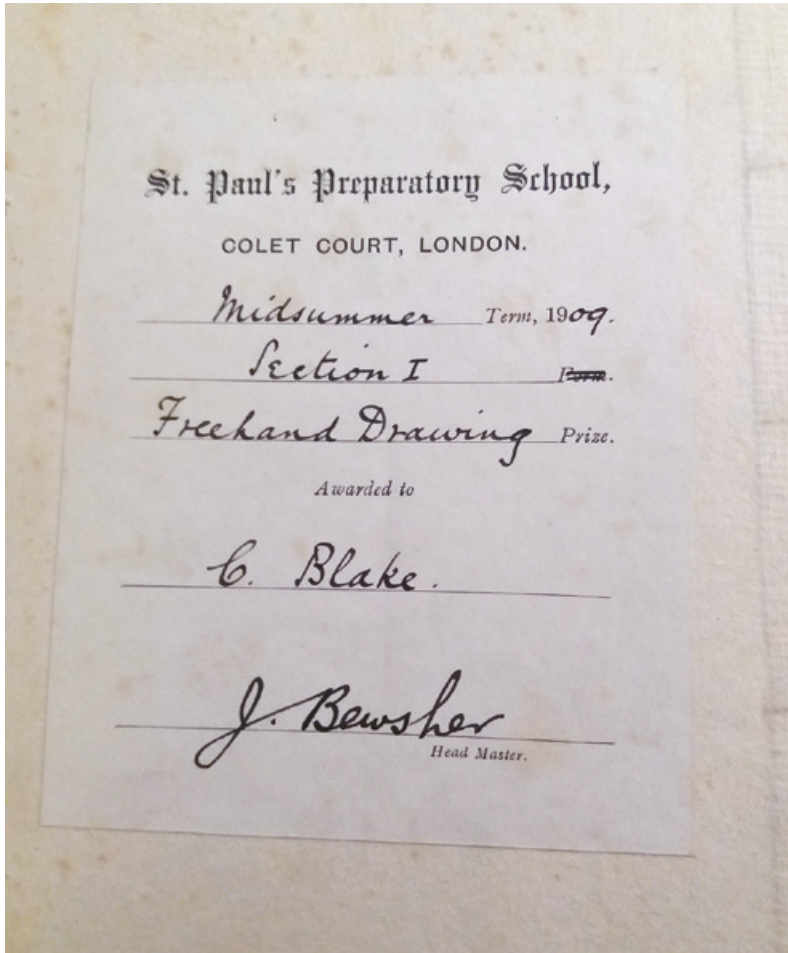 St. Paul's Preparatory School,
COLET COURT, LONDON.
Midsummer Term, 1909.
Section I Form.
Freehand Drawing Prize.
Awarded to
C. Blake.
J. Bewsher
Head Master.